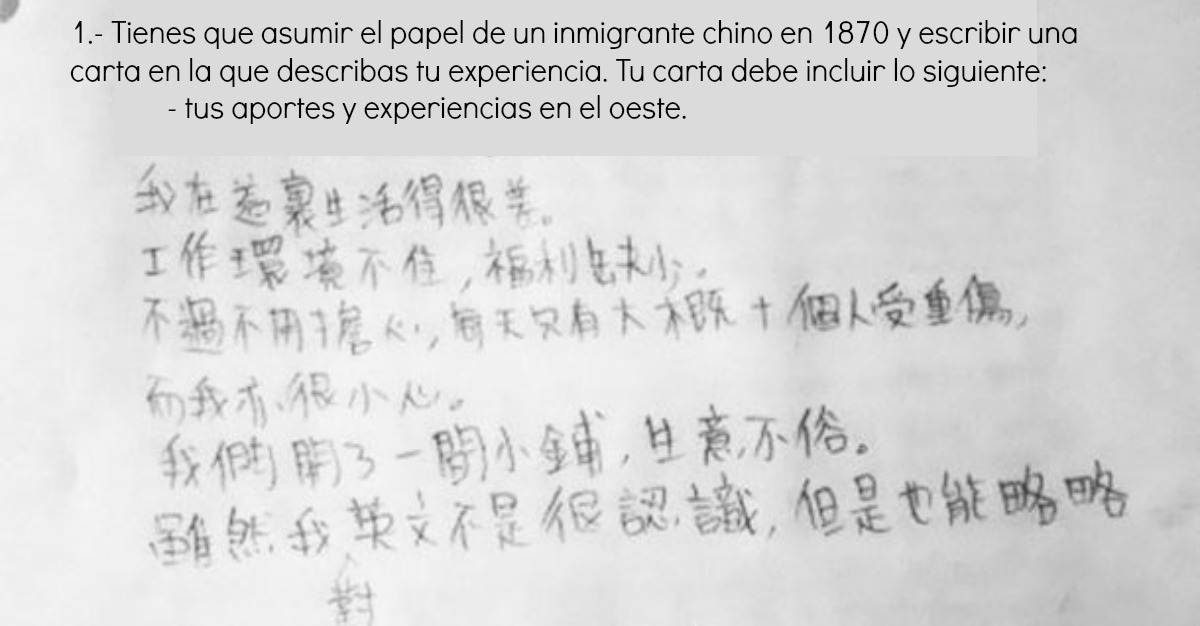 1.- Tienes que asumir el papel de un inmigrante chino en 1870 y escribir una
carta en la que describas tu experiencia. Tu carta debe incluir lo siguiente:
- tus aportes y experiencias en el oeste.
我在這裏生活得很差。
工作環境不佳,福利缺少。
不過不用擔心,每天只有大概十個人受重傷,
而我亦很小心。
我們開了一間小鋪,生意不俗。
雖然我英文不是很認識,但是也能略略
對